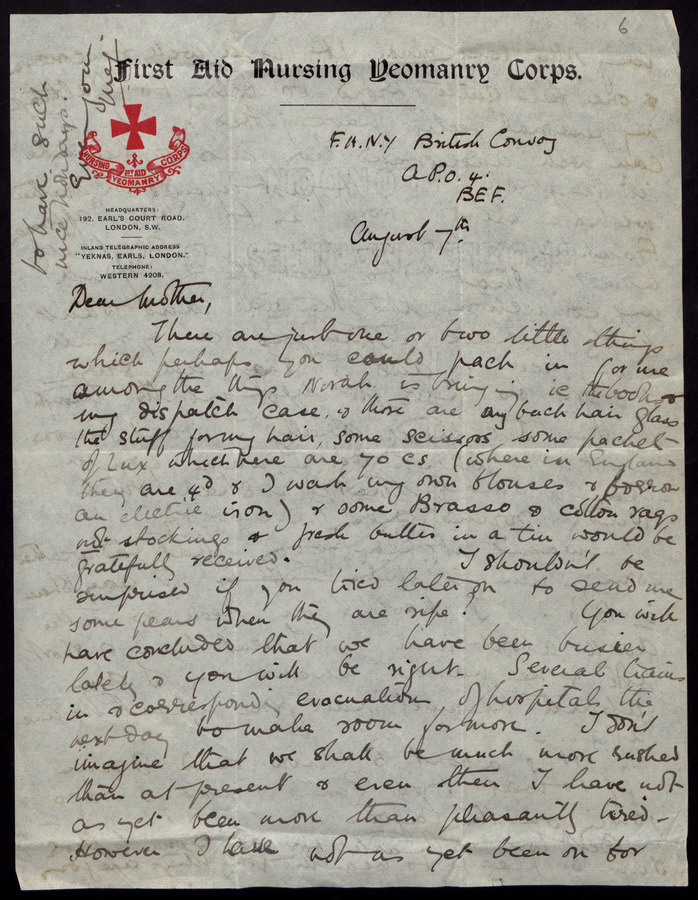 6
First Aid Nursing Yeomanry Corps.
NURSING 1ST AID CORPS
YEOMANRY
HEADQUARTERS:
192, EARL'S COURT ROAD,
LONDON, S.W.
INLAND TELEGRAPHIC ADDRESS
"YEKNAS, EARLS, LONDON."
TELEPHONE:
WESTERN 4208.
to have such
nice holidays.
Ever your
F.A.N.Y British Convoy
A.P.O. 4.
BEF.
August 7th
Dear Mother,
There are just one or two little things
which perhaps you could pack in for me
among the things Norah is bringing ie the book &
my dispatch case, & there are my back hair glass
the stuff for my hair, some scissors, some packets
of Lux which here are 70 cs (where in England
they are 4d & I wash my own blouses & borrow
an electric iron) & some Brasso & cotton rags
not stockings & fresh butter in a tin would be
gratefully received. I shouldn't be
surprised if you tried later on to send me
some pears when they are ripe! You will
have concluded that we have been busier
lately & you will be right. Several trains
in & corresponding evacuations of hospitals the
next day to make room for more. I don't
imagine that we shall be much more rushed
than at present & even then I have not
as yet been more than pleasantly tired.
However I have not as yet been on for